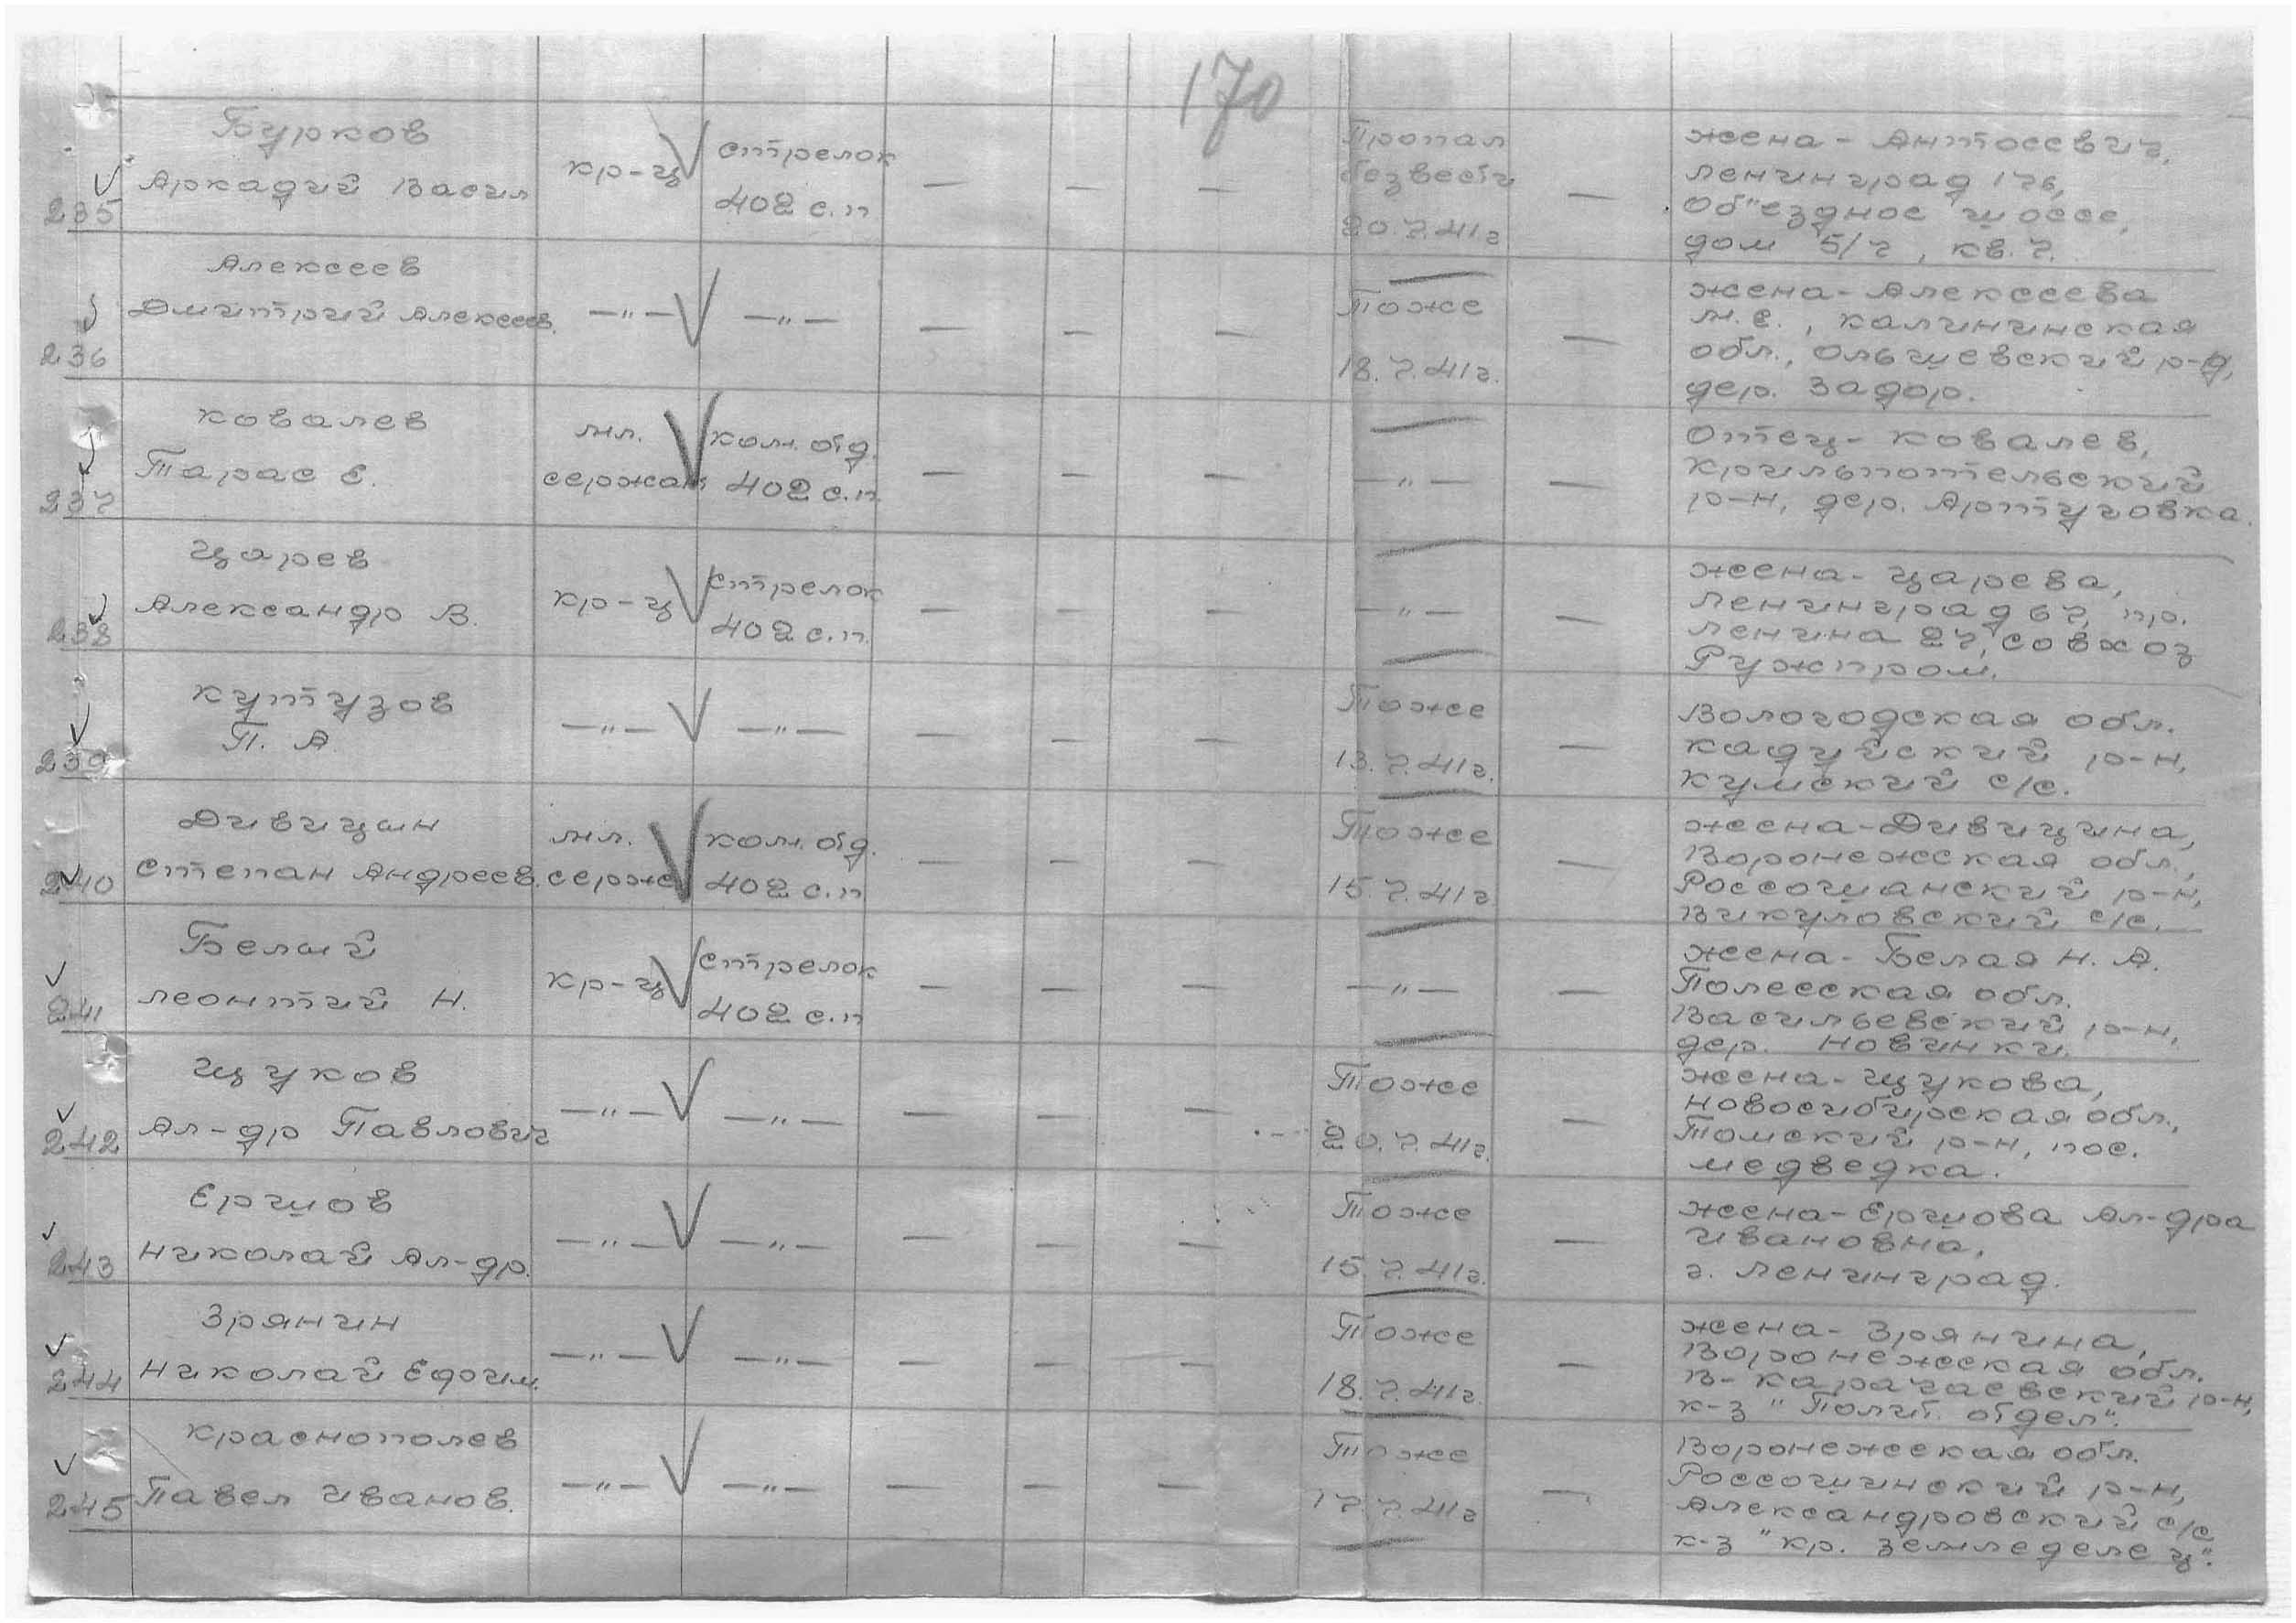 170
Бурков
Аркадий Васил
235
кр-ц
стрелок
402 с.п
— — —
Пропал
безвести
20.7.41г
—
жена - Антосевич,
Ленинград 176,
Об"ездное шоссе,
дом 5/7, кв. 7.
Алексеев
Дмитрий Алексеев.
236
—"—
—"—
— — —
Тоже
18.7.41г.
—
жена - Алексеева
М.Е., Калининская
обл., Ольшевский р-д,
дер. Задор.
Ковалев
Тарас Е.
237
мл.
сержан
ком. отд.
402 с.п.
— — —
—"—
—
Отец - Ковалев,
Крильпотельский
р-н, дер. Артуговка.
Царев
Александр В.
238
кр-ц
стрелок
402 с.п.
— — —
—"—
—
жена - Царева,
Ленинград 67, пр.
Ленина 27, совхоз
Ружпром.
Кутузов
П. А
239
—"—
—"—
— — —
Тоже
13.7.41г.
—
Вологодская обл.
Кадуйский р-н,
Кумский с/с.
Дивицын
Степан Андреев.
240
мл.
серж
ком. отд.
402 с.п
— — —
Тоже
15.7.41г
—
жена - Дивицина,
Воронежская обл.,
Россошанский р-н,
Викуловский с/с.
Белый
Леонтий Н.
241
кр-ц
стрелок
402 с.п
— — —
—"—
—
жена - Белая Н. А.
Полесская обл.
Васильевский р-н,
дер. Новинки.
Щуков
Ал-др Павлович
242
—"—
—"—
— — —
Тоже
20.7.41г.
—
жена - Щукова,
Новосибирская обл.,
Томский р-н, пос.
Медведка.
Ершов
Николай Ал-др.
243
—"—
—"—
— — —
Тоже
15.7.41г.
—
жена - Ершова Ал-дра
Ивановна,
г. Ленинград.
Зрянин
Николай Ефим.
244
—"—
—"—
— — —
Тоже
18.7.41г.
—
жена - Зрянина,
Воронежская обл.
В-Карачаевский р-н,
к-з "Полит. отдел".
Краснополев
Павел Иванов.
245
—"—
—"—
— — —
Тоже
17.7.41г
—
Воронежская обл.
Россошинский р-н,
Александровский с/с
к-з "Кр. земледелец".